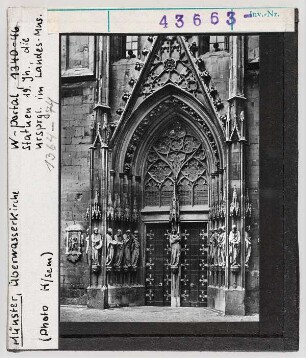 43663
Inv.-Nr.
Münster, Überwasserkirche
W-Portal 1340-46
Statuen 19. Jh., die
ursprgl. im Landes-Mus.
1364-74
(Photo H/sem)